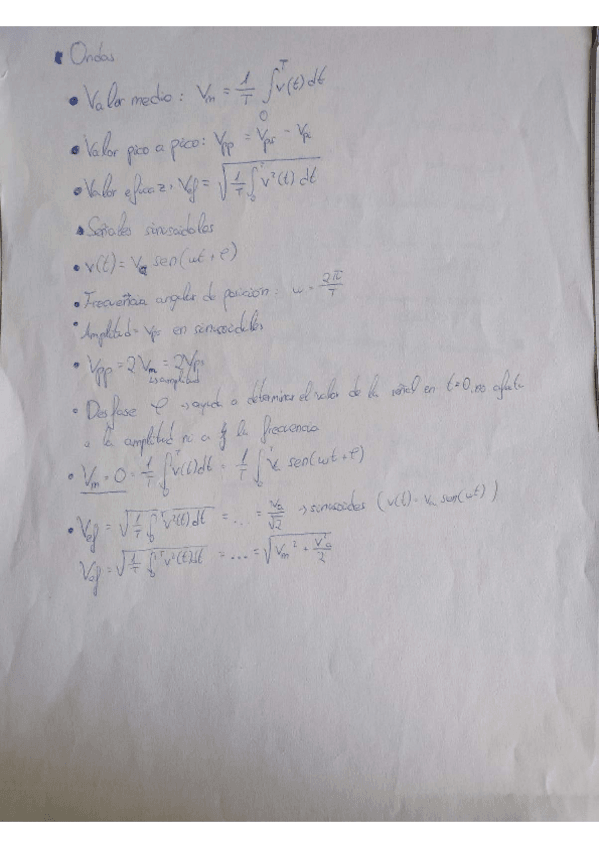 Ondas
• Valor medio: Vm = 1/T ∫₀ᵀ v(t) dt
• Valor pico a pico: Vpp = Vps - Vpi
• Valor eficaz, Vef = √(1/T ∫₀ᵀ v²(t) dt)
• Señales sinusoidales
• v(t) = Va sen(ωt + φ)
• Frecuencia angular de posición: ω = 2π/T
• Amplitud = Vps en sinusoidales
• Vpp = 2Vm = 2Vps
↳ amplitud
• Desfase φ → ayuda a determinar el valor de la señal en t=0, no afecta
a la amplitud ni a la frecuencia
• Vm = 0 = 1/T ∫₀ᵀ v(t) dt = 1/T ∫₀ᵀ Va sen(ωt + φ)
• Vef = √(1/T ∫₀ᵀ v²(t) dt) = ... = Va/√2 → sinusoides (v(t) = Va sen(ωt))
Vef = √(1/T ∫₀ᵀ v²(t) dt) = ... = √(Vm² + Va²/2)